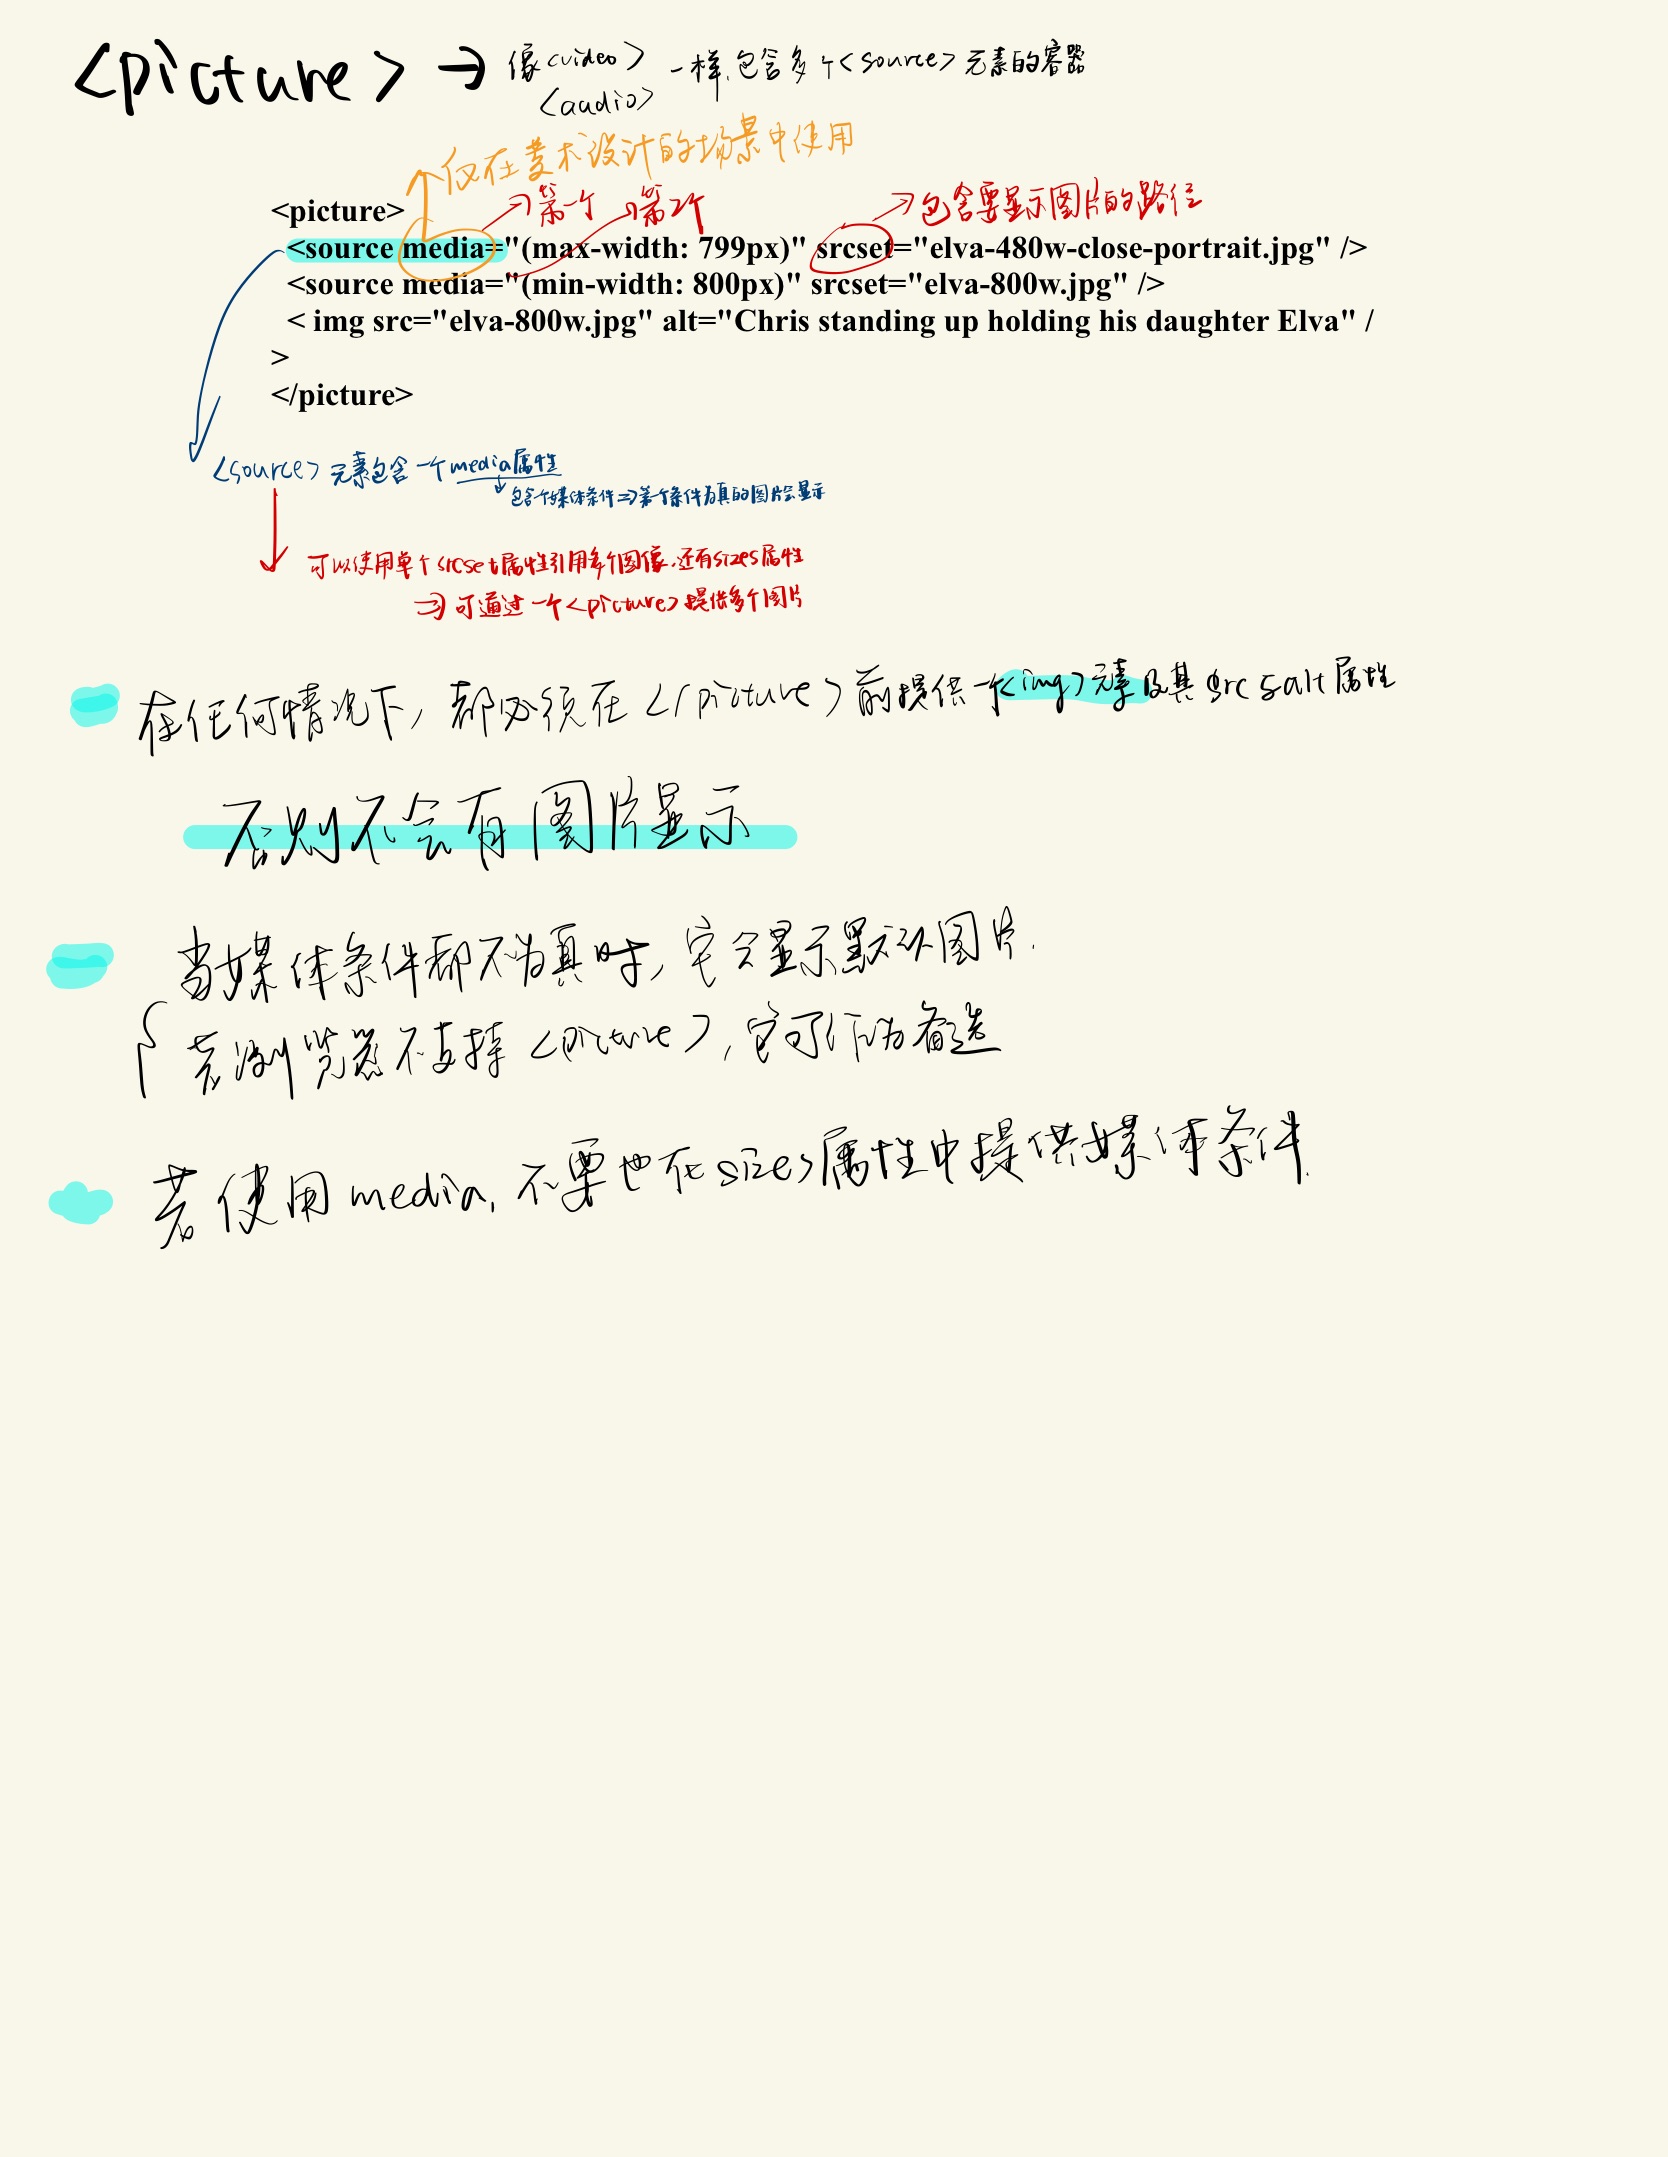 <picture> → 像<video> 一样,包含多个<source>元素的容器
<audio>
仅在美术设计的场景中使用
→第一个 →第2个 →包含要显示图片的路径
<picture>
<source media="(max-width: 799px)" srcset="elva-480w-close-portrait.jpg" />
<source media="(min-width: 800px)" srcset="elva-800w.jpg" />
< img src="elva-800w.jpg" alt="Chris standing up holding his daughter Elva" /
>
</picture>
<source>元素包含一个media属性
包含个媒体条件⇒第一个条件为真的图片会显示
可以使用单个srcset属性引用多个图像.还有sizes属性
⇒可通过一个<picture>提供多个图片
在任何情况下,都必须在</picture>前提供一个<img>元素及其src alt属性
否则不会有图片显示
当媒体条件都不为真时,它会显示默认图片.
若浏览器不支持<picture>,它可作为备选
若使用media,不要也在sizes属性中提供媒体条件.